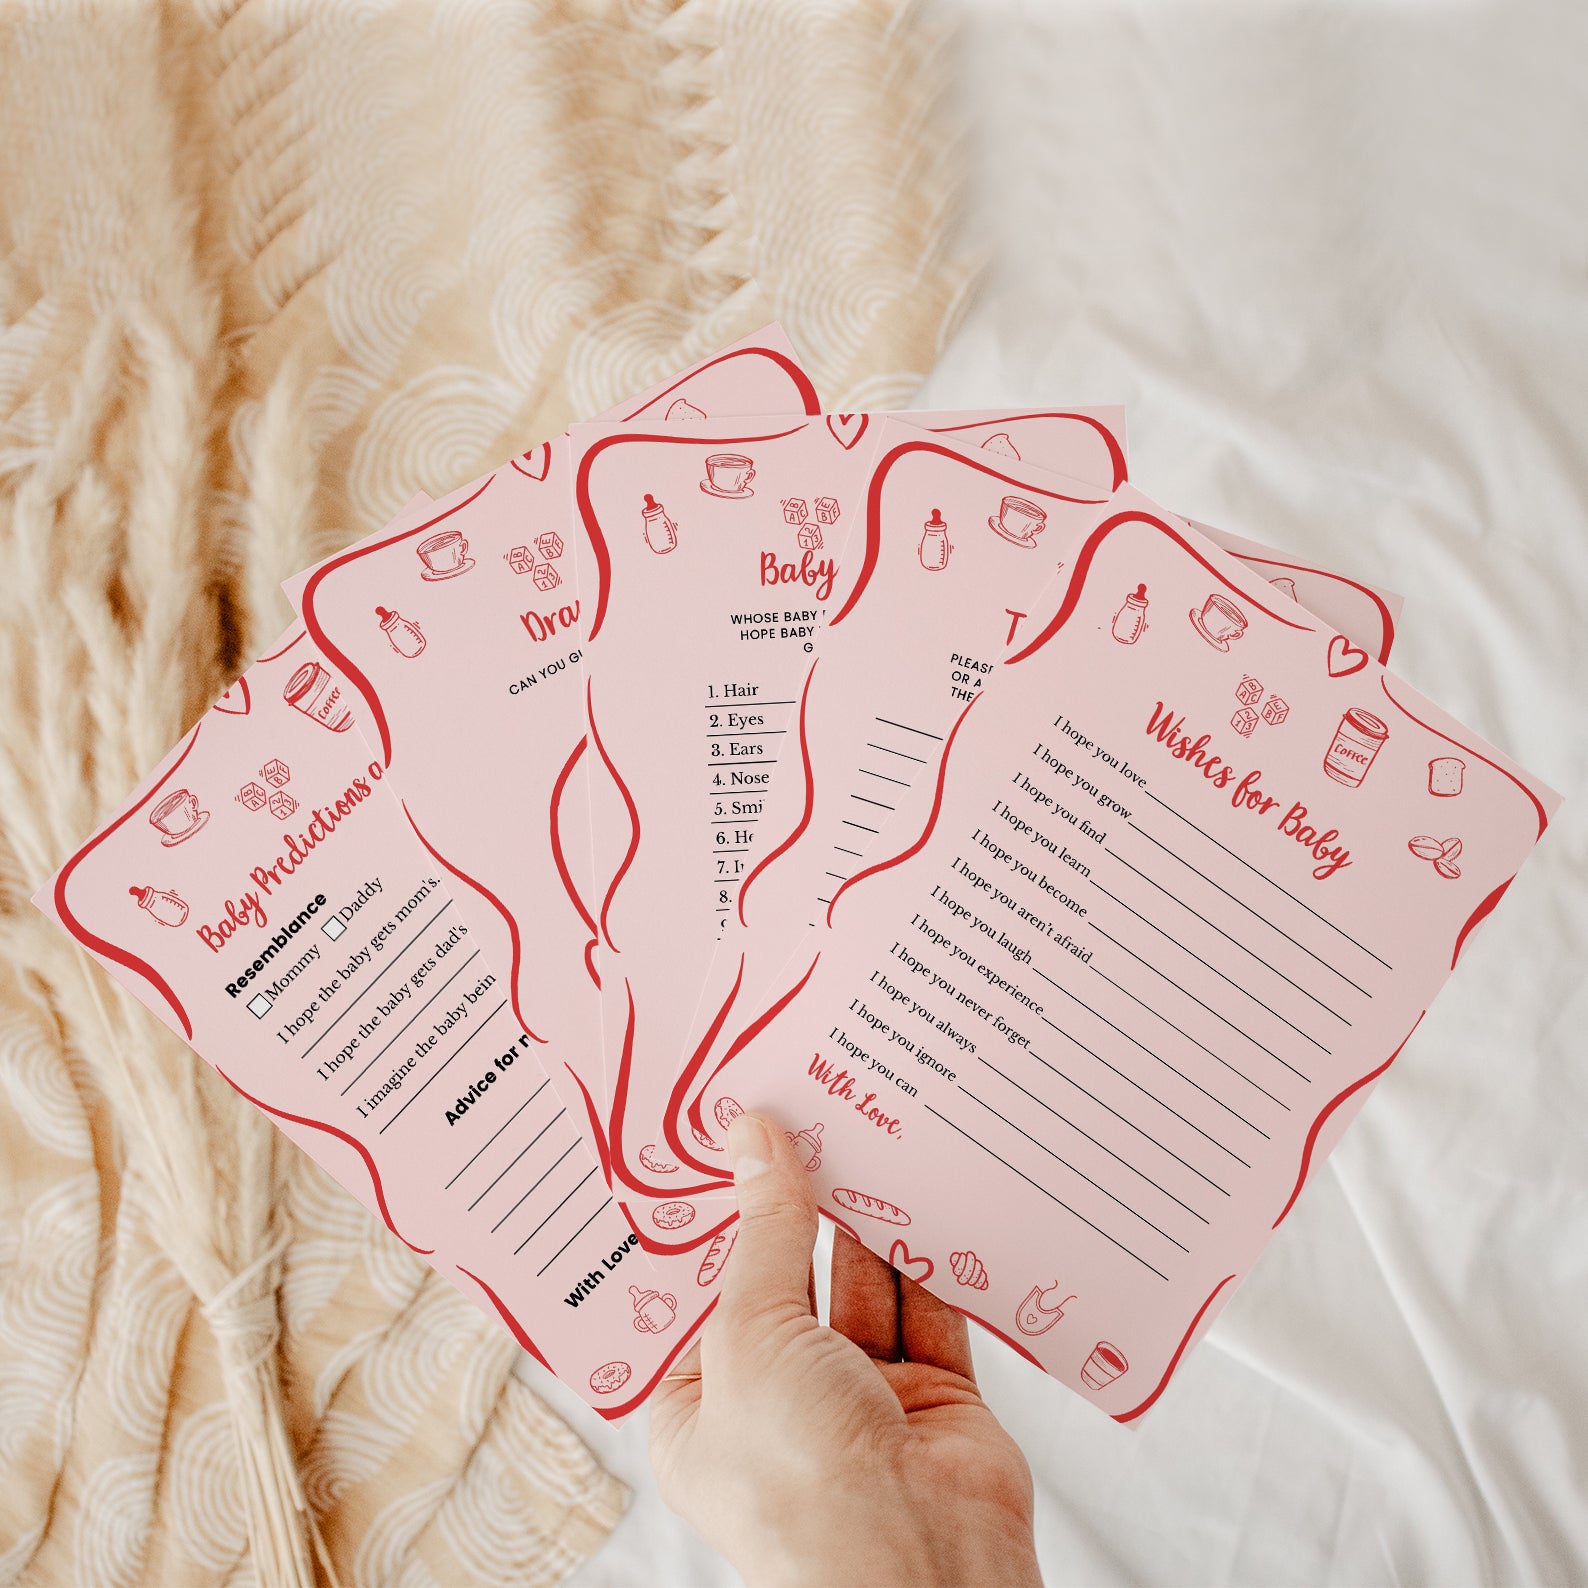 Baby Predictions a
Resemblance
Mommy Daddy
I hope the baby gets mom's.
I hope the baby gets dad's
I imagine the baby bein
Advice for
With Love
COFFEE
CAN YOU
Baby
WHOSE BABY
HOPE BABY
1. Hair
2. Eyes
3. Ears
4. Nose
5. Smi
6. He
7.
8.
T
PLEASE
OR A
THE
Wishes for Baby
I hope you love
I hope you grow
I hope you find
I hope you learn
I hope you become
I hope you aren't afraid
I hope you laugh
I hope you experience
I hope you never forget
I hope you always
I hope you ignore
I hope you can
With Love,
COFFEE